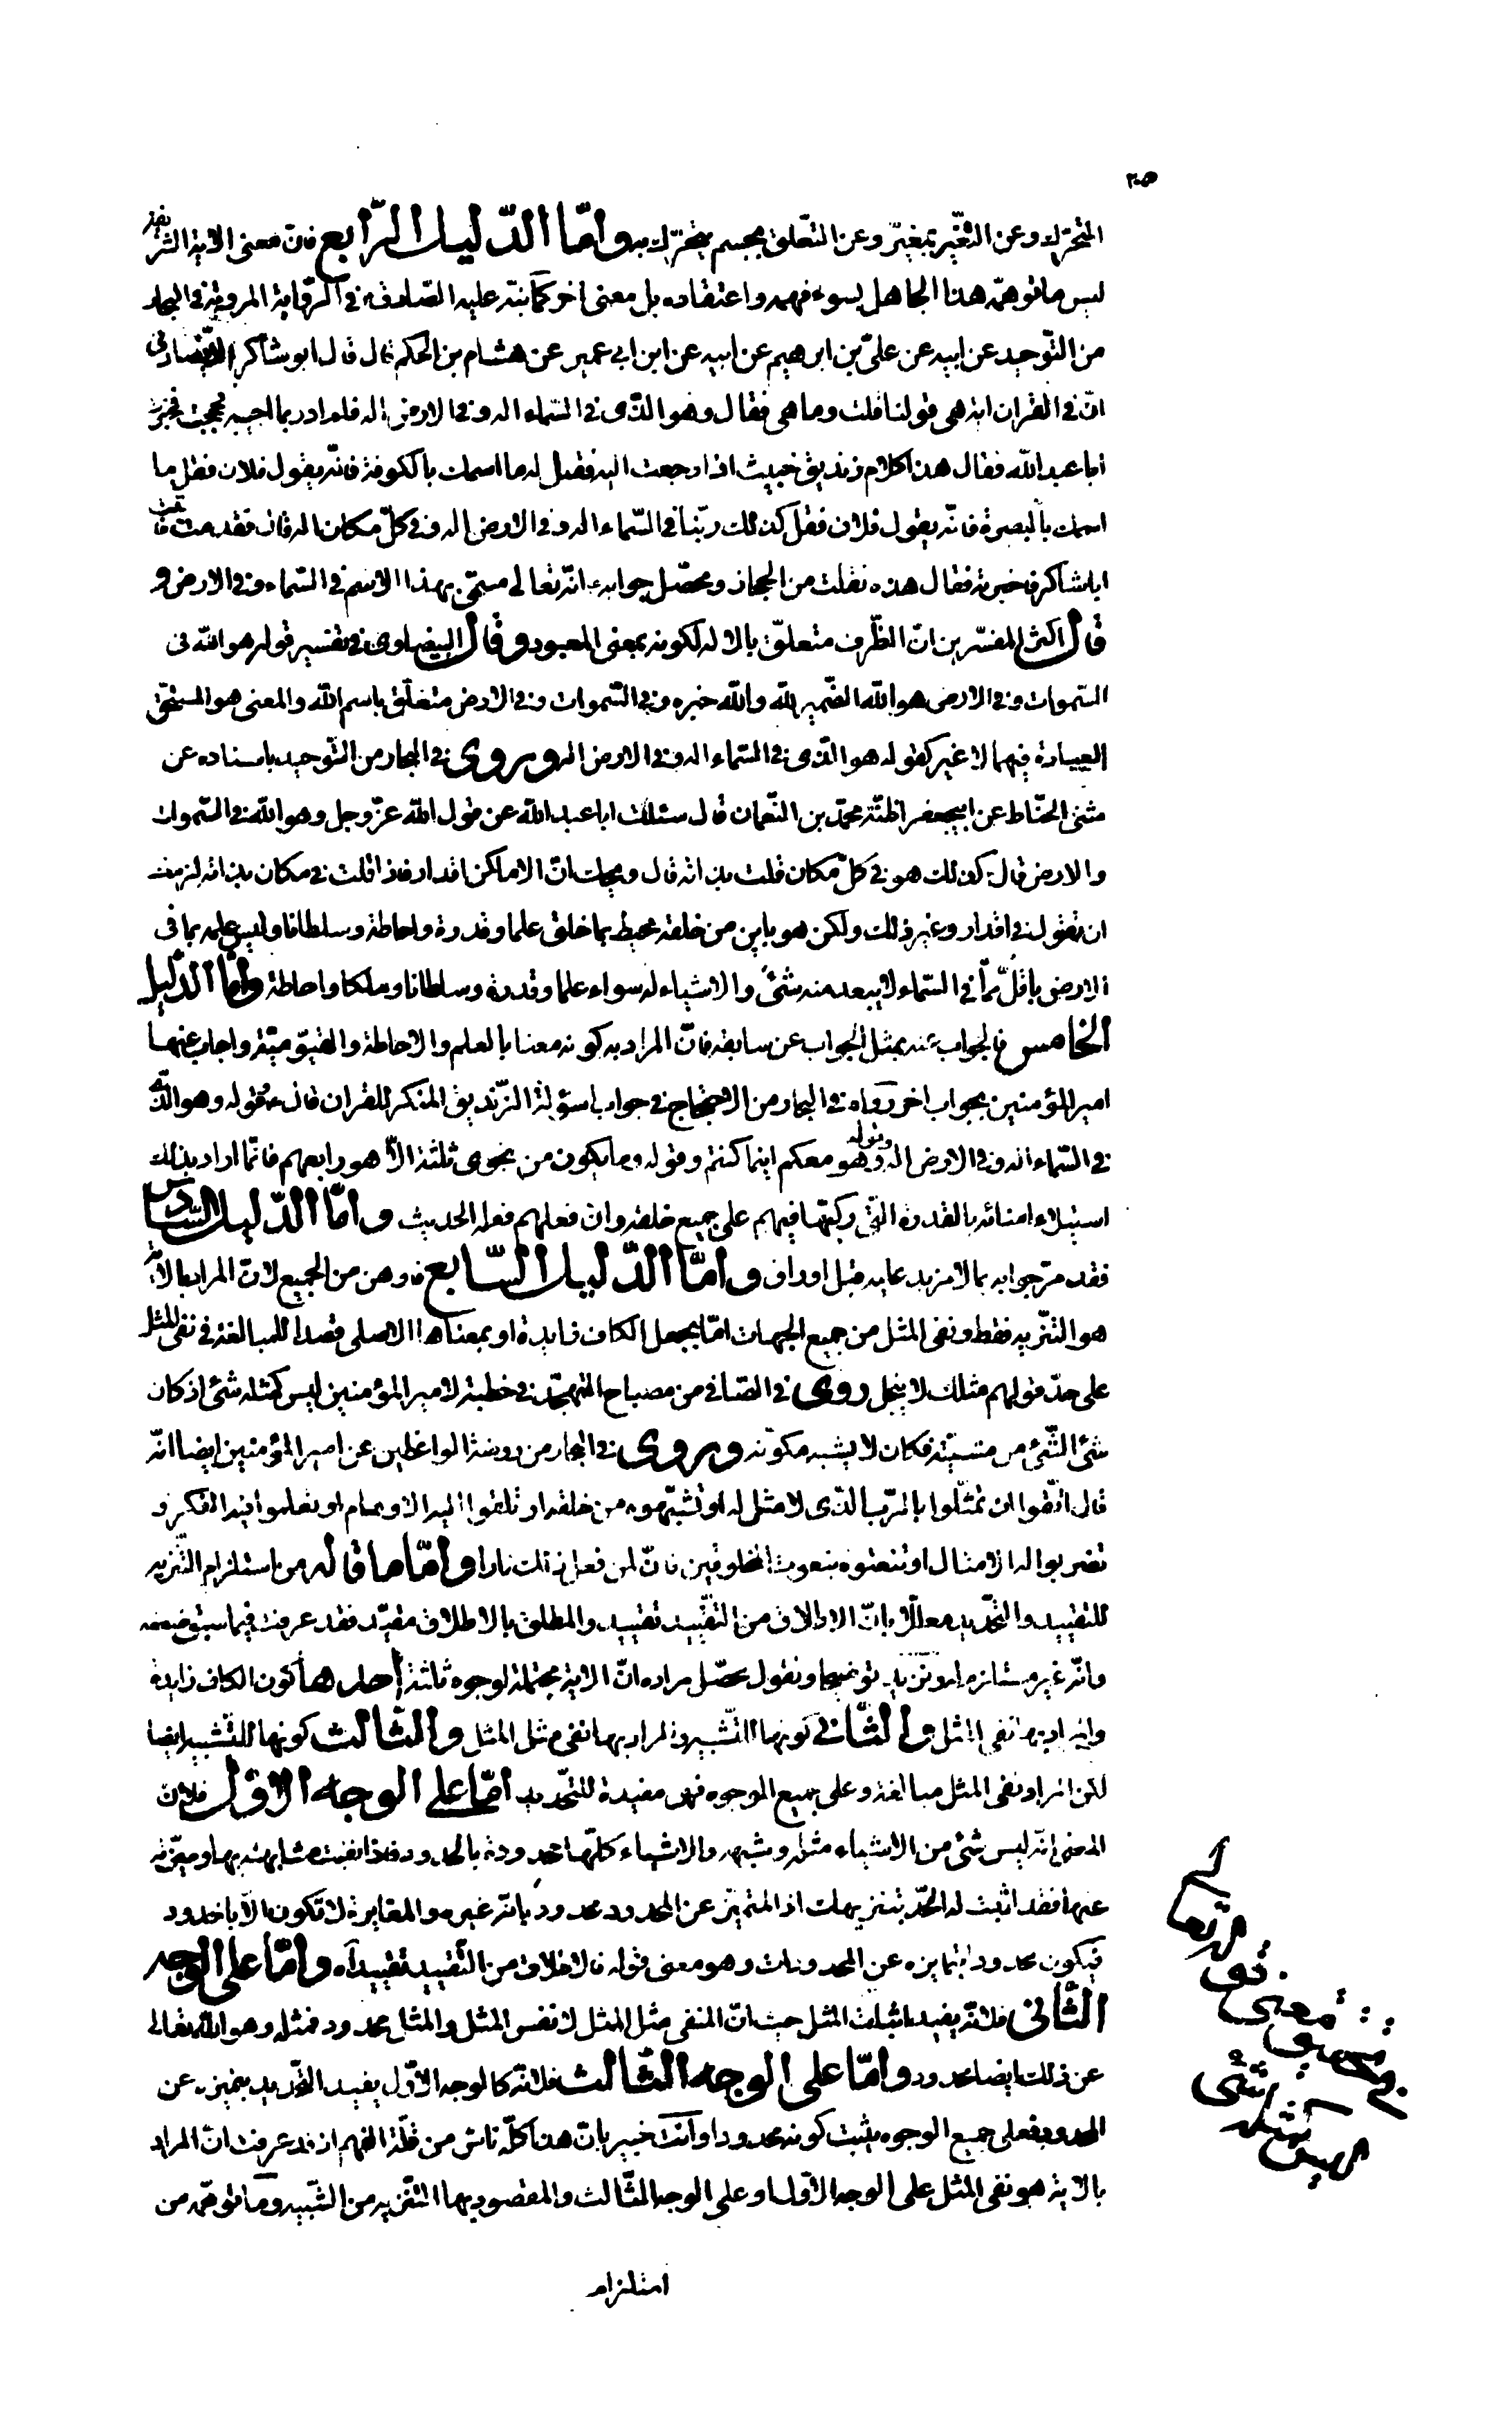 ٢٠٥
المتحرّك وعن التغيّر بمغيّر وعن التعلّق بجسم يتحرّك به وامّا الدّليل الرّابع فانّ معنى الاية الشريفة
ليس ما توهّمه هذا الجاهل بسوء فهمه واعتقاده بل معنى اخر كما نبّه عليه الصّادق في الرّواية المروية في البحار
من التّوحيد عن ابيه عن عليّ بن ابرهيم عن ابيه عن ابن ابي عمير عن هشام بن الحكم قال قال ابو شاكر الدّيصاني
انّ في القران اية هي قولنا قلت وما هي فقال وهو الذّى في السّماء اله وفي الارض اله فلم ادر بما اجيبه فحججت فخبّرت
ابا عبد الله فقال هذا كلام زنديق خبيث اذا رجعت اليه فقل له ما اسمك بالكوفة فانّه يقول فلان فقل ما
اسمك بالبصرة فانّه يقول فلان فقل كذلك ربّنا في السّماء اله وفي الارض اله وفي كلّ مكان اله قال فقدمت فاتيت
ابا شاكر فاخبرته فقال هذه نقلت من الحجاز ومحصّل جوابه انّه تعالى مسمّى بهذا الاسم في السّماء وفي الارض و
قال اكثر المفسّرين انّ الظّرف متعلّق بالاله لكونه بمعنى المعبود وقال البيضاوى في تفسير قوله هو الله في
السّموات وفي الارض هو الله الضّمير لله والله خبره وفي السّموات وفي الارض متعلّق باسم الله والمعنى هو المستحق
العبادة فيهما لا غير كقوله هو الذّى في السّماء اله وفي الارض اله وروى في البحار من التّوحيد باسناده عن
مثنى الحنّاط عن ابيجعفر اظنّه محمّد بن النّعمان قال سئلت ابا عبد الله عن قول الله عزّ وجل وهو الله في السّموات
والارض قال كذلك هو في كلّ مكان قلت بذاته قال ويحك انّ الاماكن اقدار فاذا قلت في مكان بذاته لزمك
ان تقول في اقدار وغير ذلك ولكن هو باين من خلقه محيط بما خلق علما وقدرة واحاطة وسلطانا وليس علمه بما في
الارض باقلّ ممّا في السّماء لا يبعد منه شئ والاشياء له سواء علما وقدرة وسلطانا وملكا واحاطة وامّا الدّليل
الخامس فالجواب عنه بمثل الجواب عن سابقه فانّ المراد به كونه معنا بالعلم والاحاطة والقيّوميّة واجاب عنهما
امير المؤمنين بجواب اخر رواه في البحار من الاحتجاج في جواب اسؤلة الزّنديق المنكر للقران قال وقوله وهو الذّى
في السّماء اله وفي الارض اله وقوله وهو معكم اينما كنتم وقوله وما يكون من نجوى ثلثة الاّ هو رابعهم فانّما اراد بذلك
استيلاء امنائه بالقدرة التّي ركبّها فيهم على جميع خلقه وان فعلهم فعله الحديث وامّا الدّليل السّادس
فقد مرّ جوابه بما لا مزيد عليه قبل اوراق وامّا الدّليل السّابع فاوهن من الجميع لانّ المراد بالاية
هو التنّزيه فقط ونفى المثل من جميع الجهات امّا بجعل الكاف زايدة او بمعناها الاصلي قصدا للمبالغة في نفى المثل
على حدّ قولهم مثلك لا يبخل روى في الصّافي من مصباح المتهجّد في خطبة لامير المؤمنين ليس كمثله شئ اذ كان
شئ الشّئ من مشيّته فكان لا يشبه مكوّنه وروى في البحار من روضة الواعظين عن امير المؤمنين ايضا انّه
قال اتّقوا ان تمثّلوا بالرّب الذّى لا مثل له او تشبّهوه من خلقه او تلقوا اليه الاوهام او تعلموا فيه الفكر و
تضربوا له الامثال او تنعتوه بنعوت المخلوقين فانّ لمن فعل ذلك نارا وامّا ما قاله من استلزام التّنزيه
للتقييد والتّحديد معللّا بانّ الاطلاق من التقّييد تقييد والمطلق بالاطلاق مقيّد فقد عرفت فيما سبق ضعفه
وانّه غير مستلزم له ونزيد توضيحا ونقول محصّل مراده انّ الاية محتملة لوجوه ثلثة احدها كون الكاف زايدة
وايراد بها نفى المثل والثّاني كونها للتّشبيه والمراد بها نفى مثل المثل والثّالث كونها للتّشبيه ايضا
لكن المراد نفى المثل مبالغة وعلى جميع الوجوه فهى مفيدة للتّحديد امّا على الوجه الاوّل فلانّ
المعنى انّه ليس شئ من الاشياء مثله وشبهه والاشياء كلّها محدودة بالحدود فاذا نفيت مشابهته بها وميّزته
عنها فقد اثبت له الحدّ بتنزيهك اذ المتميّز عن المحدود محدود بانّه غيره والمغايرة لا تكون الاّ بالحدود
فيكون محدودا بتمايزه عن المحدودات وهو معنى قوله فالاطلاق من التّقييد تقييد اه وامّا على الوجه
الثّاني فلانّه يفيد اثبات المثل حيث انّ المنفى مثل المثل لا نفس المثل والمثل محدود فمثله وهو الله تعالى
عن ذلك ايضا محدود وامّا على الوجه الثّالث فلانّه كالوجه الاوّل يفيد التّحديد بتميزه عن
المحدود فعلى جميع الوجوه يثبت كونه محدودا وانت خبير بانّ هذا كلّه ناش من قلّة الفهم اذ قد عرفت انّ المراد
بالاية هو نفى المثل على الوجه الاوّل وعلى الوجه الثّالث والمقصود بها التّنزيه من التّشبيه وما توهّمه من
في
معنى
قوله تعالى
ليس كمثله شئ
استلزام